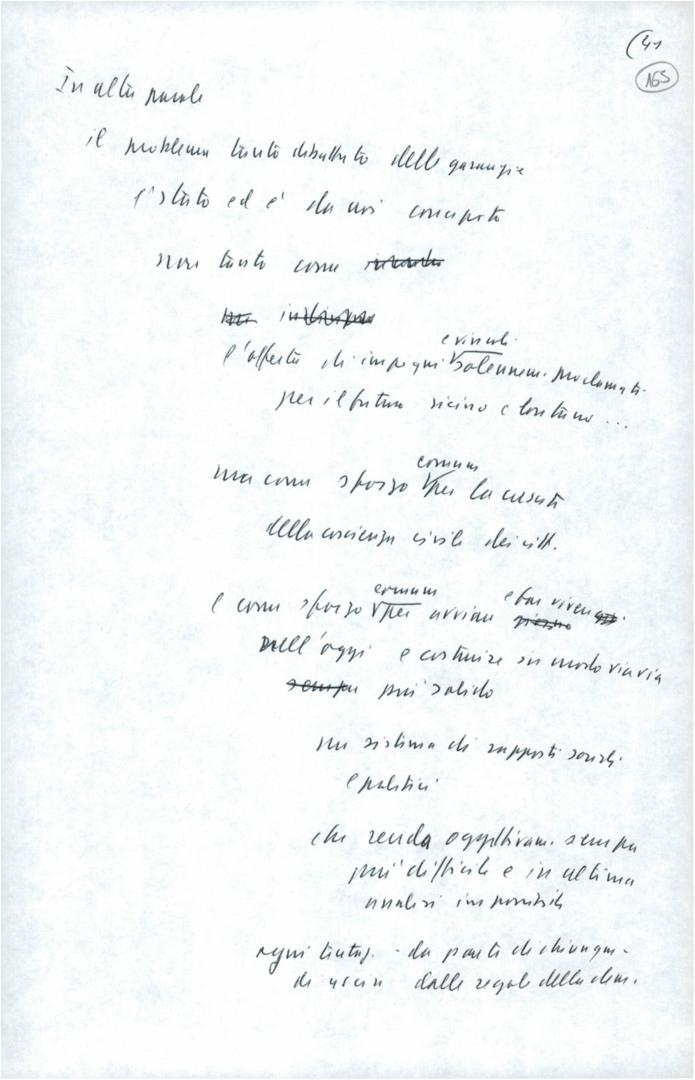 (41
165
In altre parole
il problema tanto dibattuto delle garanzie
è stato ed è da noi concepito
non tanto come
e vincoli
l'offerta di impegni solennem. proclamati
per il futuro vicino e lontano ...
comune
ma come sforzo per la crescita
della coscienza civile dei citt.
comune e far vivere
e come sforzo per avviare
nell'oggi e costruire in modo via via
sempre più solido
un sistema di rapporti sociali
e politici
che renda oggettivam. sempre
più difficile e in ultima
analisi impossibile
ogni tentat. - da parte di chiunque -
di uscire dalle regole della dem.